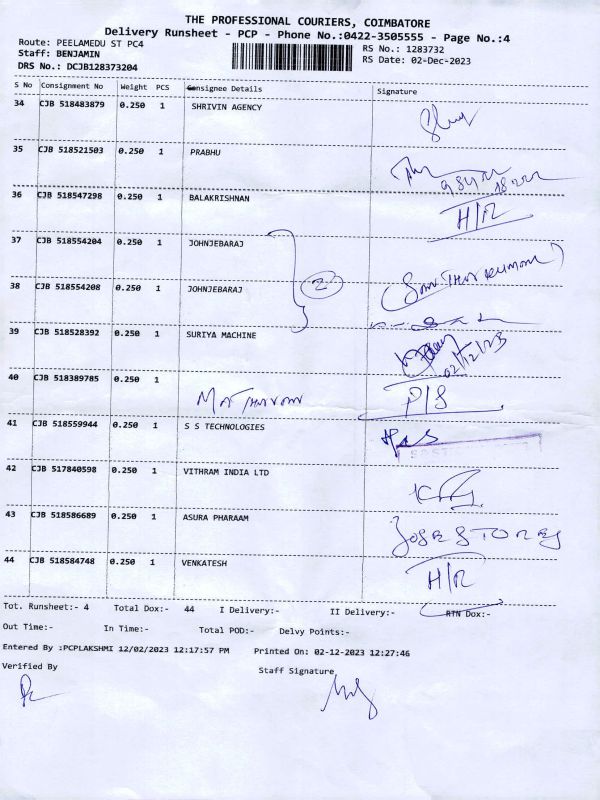 THE PROFESSIONAL COURIERS, COIMBATORE
Delivery Runsheet - PCP - Phone No.:0422-3505555 - Page No.:4
Route: PEELAMEDU ST PC4
RS No.: 1283732
Staff: BENJAMIN
RS Date: 02-Dec-2023
DRS No.: DCJB128373204
S No Consignment No Weight PCS Consignee Details Signature
34 CJB 518483879 0.250 1 SHRIVIN AGENCY
35 CJB 518521503 0.250 1 PRABHU
36 CJB 518547298 0.250 1 BALAKRISHNAN H/R
37 CJB 518554204 0.250 1 JOHNJEBARAJ
2
38 CJB 518554208 0.250 1 JOHNJEBARAJ
39 CJB 518528392 0.250 1 SURIYA MACHINE
02/12/23
40 CJB 518389785 0.250 1 P/S
41 CJB 518559944 0.250 1 S S TECHNOLOGIES
42 CJB 517840598 0.250 1 VITHRAM INDIA LTD
43 CJB 518586689 0.250 1 ASURA PHARAAM
44 CJB 518584748 0.250 1 VENKATESH H/R
Tot. Runsheet:- 4 Total Dox:- 44 I Delivery:- II Delivery:- RTN Dox:-
Out Time:- In Time:- Total POD:- Delvy Points:-
Entered By :PCPLAKSHMI 12/02/2023 12:17:57 PM Printed On: 02-12-2023 12:27:46
Verified By Staff Signature